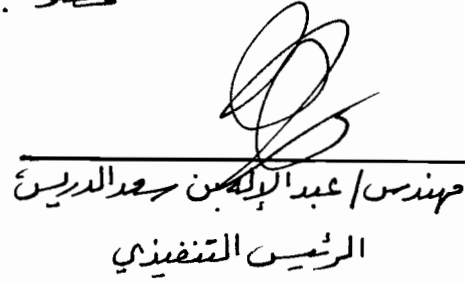 مهندس / عبد الإله بن سعد الدريس
الرئيس التنفيذي